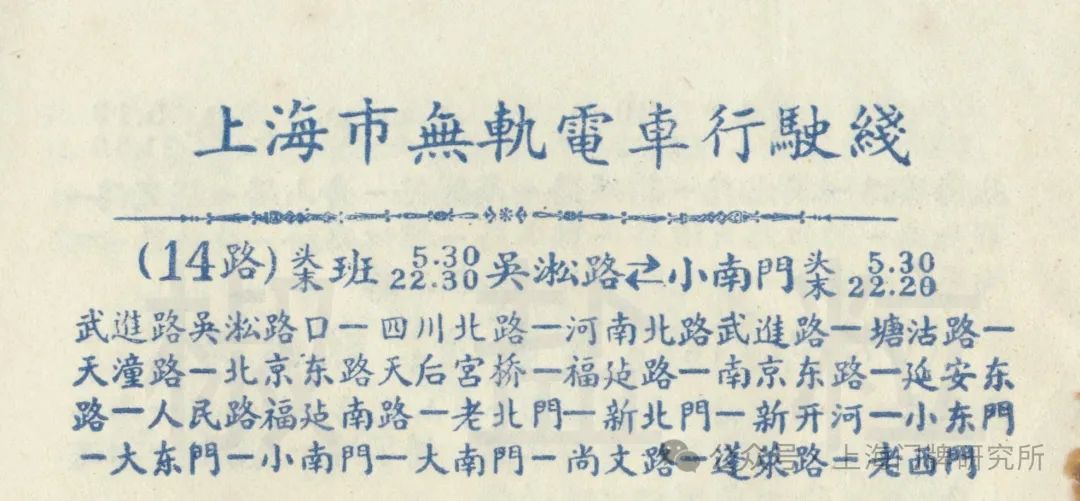 上海市無軌電車行駛綫
(14路) 头末班 5.30 22.30 吳淞路⇄小南門 头末 5.30 22.20
武進路吳淞路口—四川北路—河南北路武進路—塘沽路—
天潼路—北京东路天后宮桥—福建路—南京东路—延安东
路—人民路福建南路—老北門—新北門—新开河—小东門
—大东門—小南門—大南門—尚文路—蓬萊路—老西門
公众号·上海门牌研究所